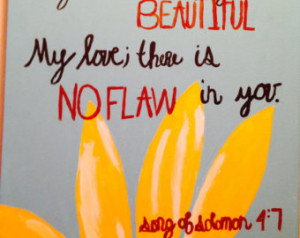 BEAUTIFUL
My love; there is
NO FLAW in you.
song of solomon 4:7